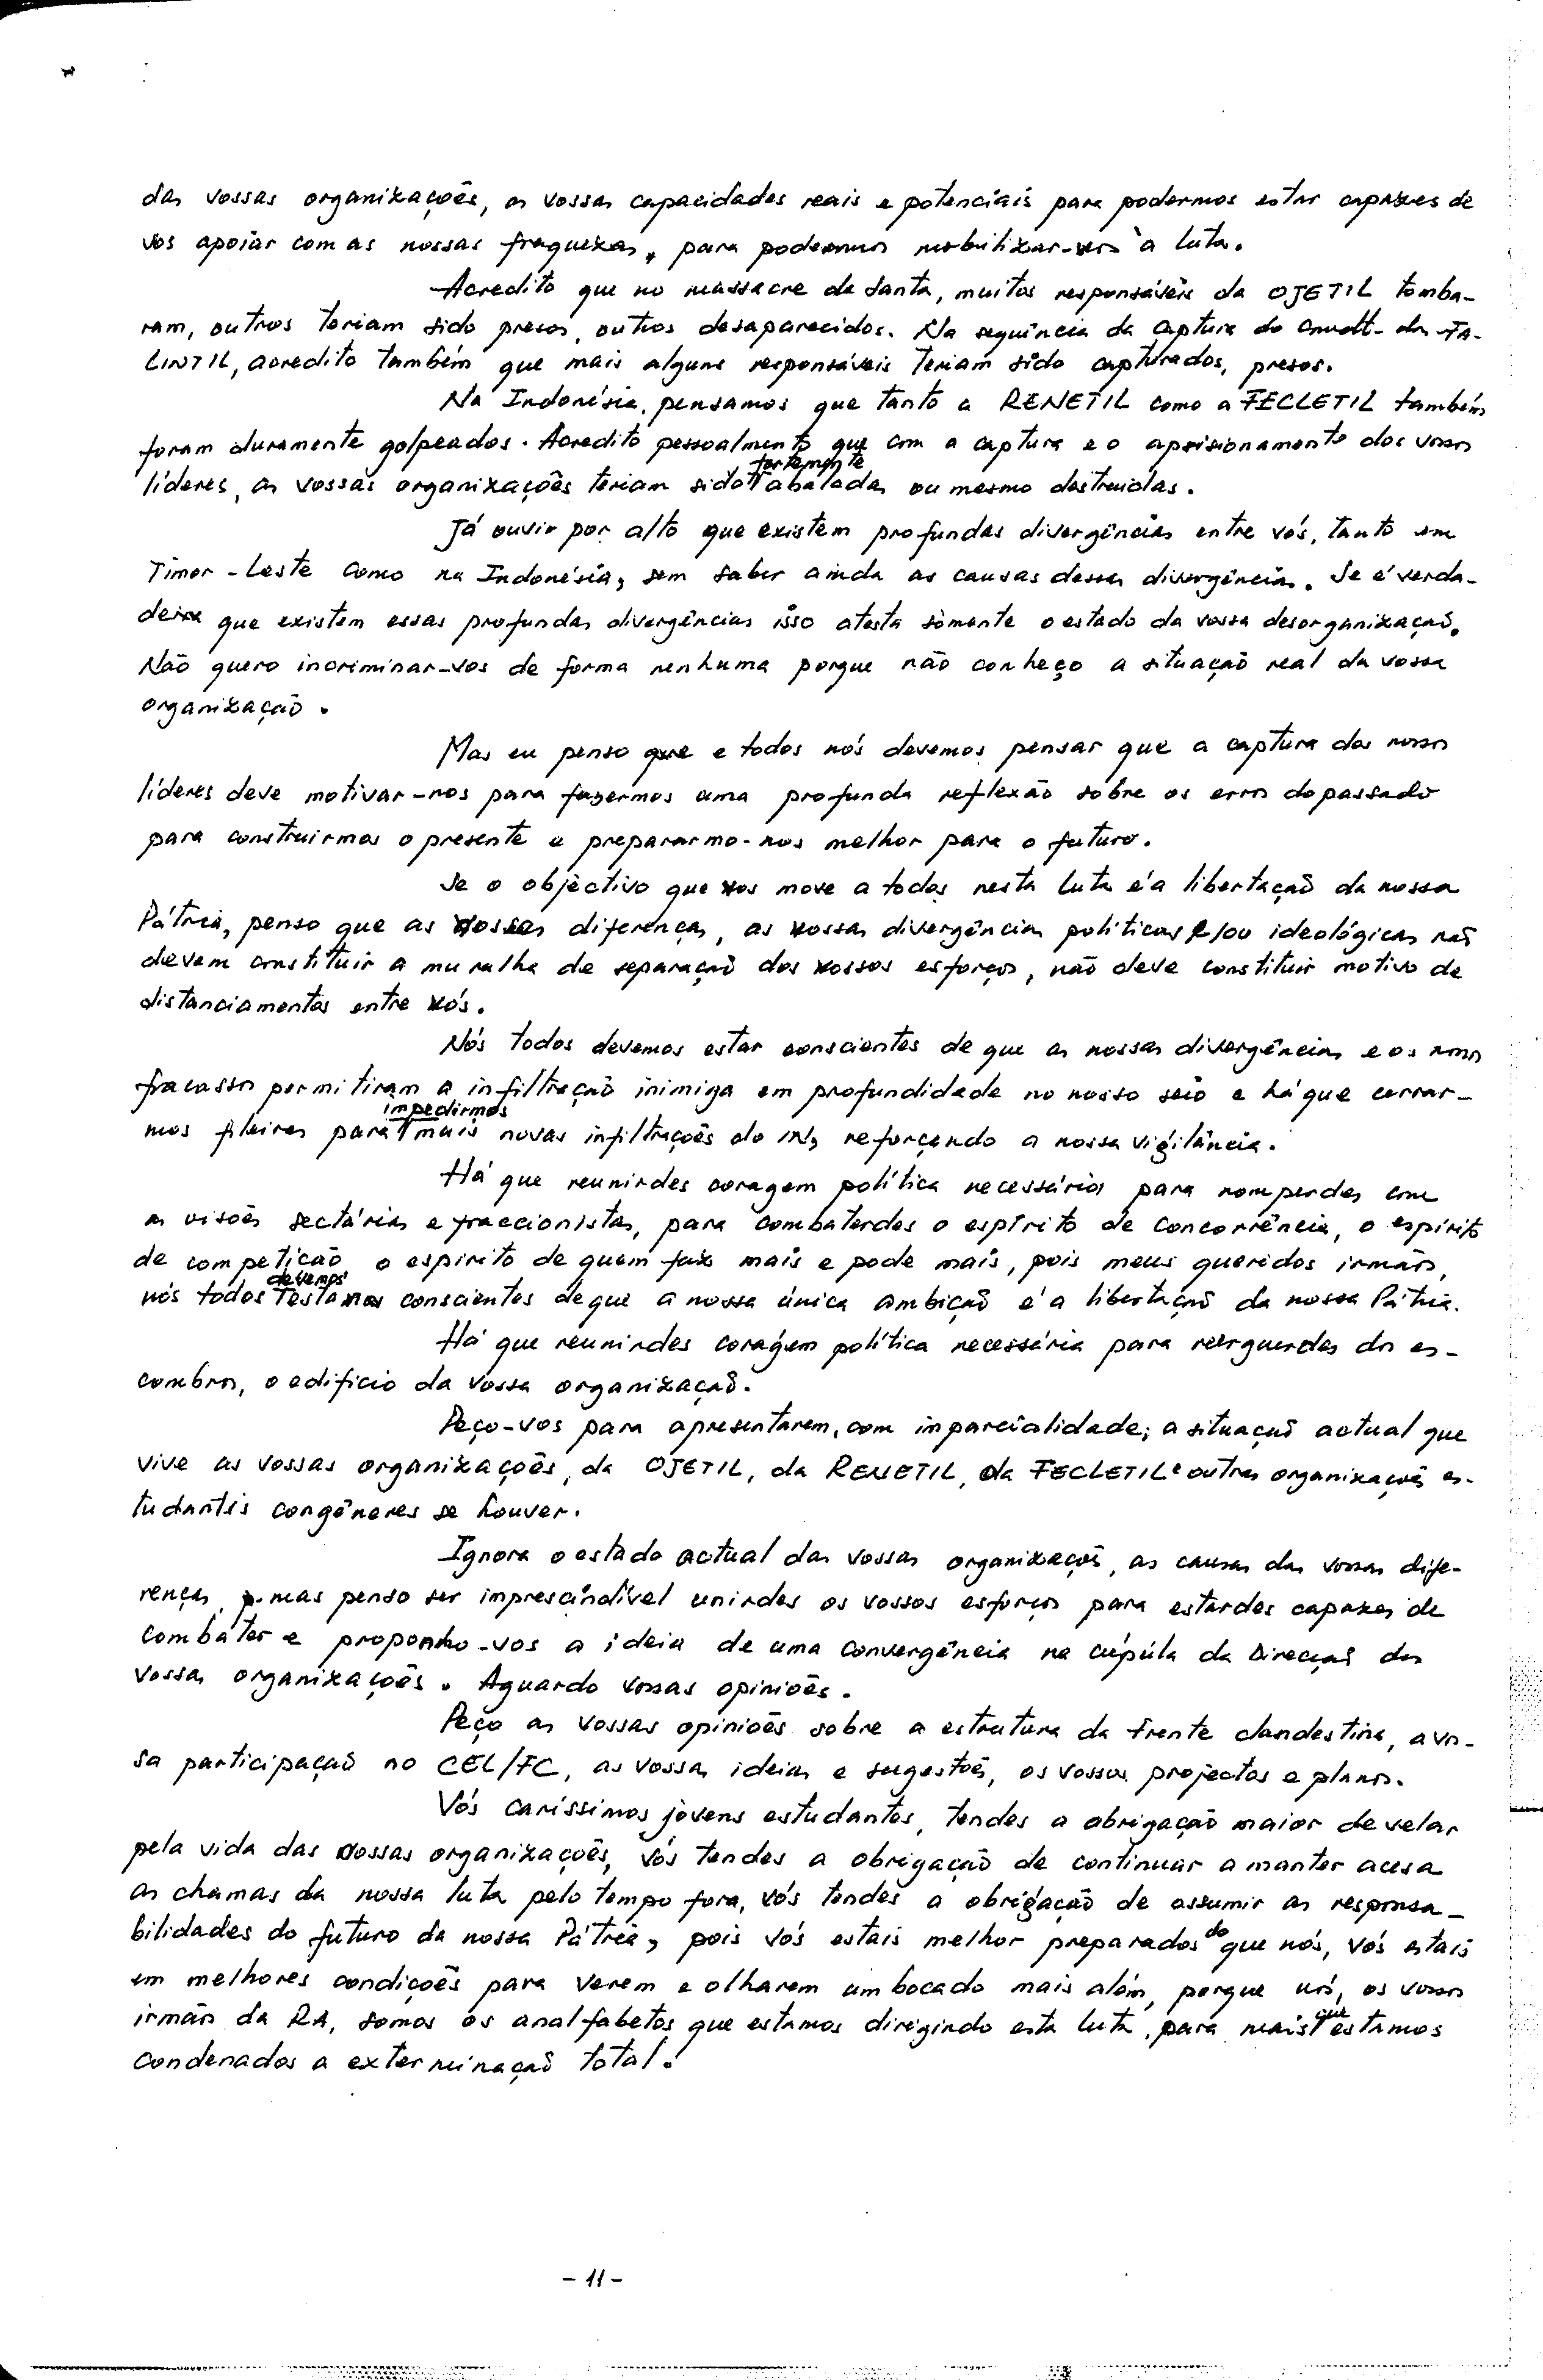 das vossas organizações, as vossas capacidades reais e potenciais para podermos estar capazes de
vos apoiar com as nossas fraquezas, para podermos mobilizar-vos à luta.
Acredito que no massacre de Santa, muitos responsáveis da OJETIL tomba-
ram, outros teriam sido presos, outros desaparecidos. Na sequência da captura do Cmdt- das FA-
LINTIL, acredito também que mais alguns responsáveis teriam sido capturados, presos.
Na Indonésia, pensamos que tanto a RENETIL como a FECLETIL também
foram duramente golpeados. Acredito pessoalmente que com a captura e o aprisionamento dos vossos
líderes, as vossas organizações teriam sido fortemente abaladas ou mesmo destruidas.
Já ouvir por alto que existem profundas divergências entre vós, tanto em
Timor-Leste como na Indonésia, sem saber ainda as causas dessas divergências. Se é verda-
deira que existem essas profundas divergências isso atesta sòmente o estado da vossa desorganização.
Não quero incriminar-vos de forma nenhuma porque não conheço a situação real da vossa
organização.
Mas eu penso que e todos nós devemos pensar que a captura dos nossos
líderes deve motivar-nos para fazermos uma profunda reflexão sobre os erros do passado
para construirmos o presente e prepararmo-nos melhor para o futuro.
Se o objectivo que nos move a todos nesta luta é a libertação da nossa
Pátria, penso que as nossas diferenças, as nossas divergências políticas e/ou ideológicas não
devem constituir a muralha de separação dos nossos esforços, não deve constituir motivo de
distanciamentos entre nós.
Nós todos devemos estar conscientes de que as nossas divergências e os nossos
fracassos permitiram a infiltração inimiga em profundidade no nosso seio e há que cerrar-
mos fileiras para impedirmos mais novas infiltrações do IN, reforçando a nossa vigilância.
Há que reunirdes coragem política necessária para romperdes com
as visões sectárias e fraccionistas, para combaterdes o espírito de concorrência, o espírito
de competição, o espírito de quem faz mais e pode mais, pois meus queridos irmãos,
nós todos devemos estar conscientes de que a nossa única ambição é a libertação da nossa Pátria.
Há que reunirdes coragem política necessária para reerguerdes dos es-
combros, o edifício da vossa organização.
Peço-vos para apresentarem, com imparcialidade, a situação actual que
vive as vossas organizações, da OJETIL, da RENETIL, da FECLETIL e outras organizações es-
tudantis congéneres se houver.
Ignora o estado actual das vossas organizações, as causas das vossas dife-
renças, mas penso ser imprescindível unirdes os vossos esforços para estardes capazes de
combater e proponho-vos a ideia de uma convergência na cúpula da Direcção das
vossas organizações. Aguardo vossas opiniões.
Peço as vossas opiniões sobre a estrutura da Frente clandestina, a vos-
sa participação no CEL/FC, as vossas ideias e sugestões, os vossos projectos e planos.
Vós caríssimos jóvens estudantes, tendes a obrigação maior de velar
pela vida das vossas organizações, vós tendes a obrigação de continuar a manter acesa
as chamas da nossa luta pelo tempo fora, vós tendes a obrigação de assumir as responsa-
bilidades do futuro da nossa Pátria, pois vós estais melhor preparados do que nós, vós estais
em melhores condições para verem e olharem um bocado mais além, porque nós, os vossos
irmãos da RA, somos os analfabetos que estamos dirigindo esta luta, para mais que estamos
condenados a exterminação total.
- 11 -